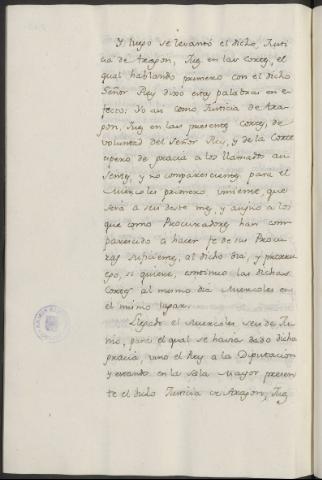 Y luego se levantó el dicho, Justi
cia de Aragon, Juez en las Cortes, el
qual hablando primero con el dicho
Señor Rey dixo estas palabras en e-
fecto: Yo asi como Justicia de Ara-
gon, Juez en las presentes Cortes, de
voluntad del Señor Rey, y de la Corte
espero de gracia a los llamados au
sentes, y no comparecientes, para el
Miercoles primero viniente, que
será a seis deste mes, y asigno a los
que como Procuradores han com-
parecido a hacer fe de sus Procu
ras suficientes, al dicho dia, y prorro
go, si quiere, continuo las dichas
Cortes al mismo dia Miercoles en
el mismo lugar.
Llegado el Miercoles seis de Ju
nio, para el qual se havia dado dicha
gracia, vino el Rey a la Diputacion
y estando en la Sala Mayor presen
te el dicho Justicia de Aragon, Juez